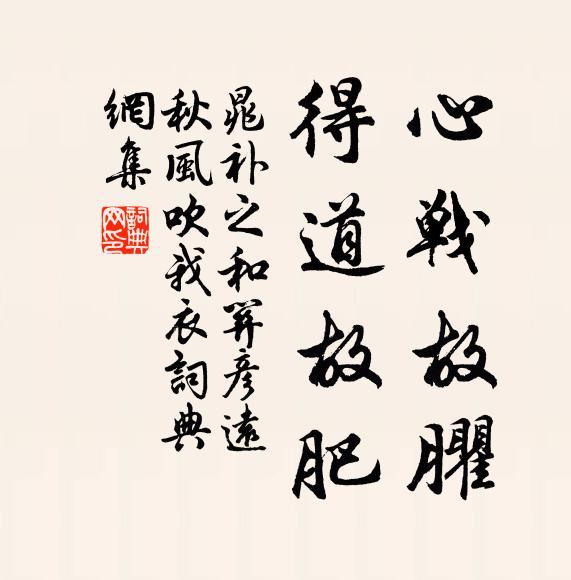 心戰故臞
得道故肥
晁补之和關彥遠
秋風吹我衣詞典
網集
詞典
网印